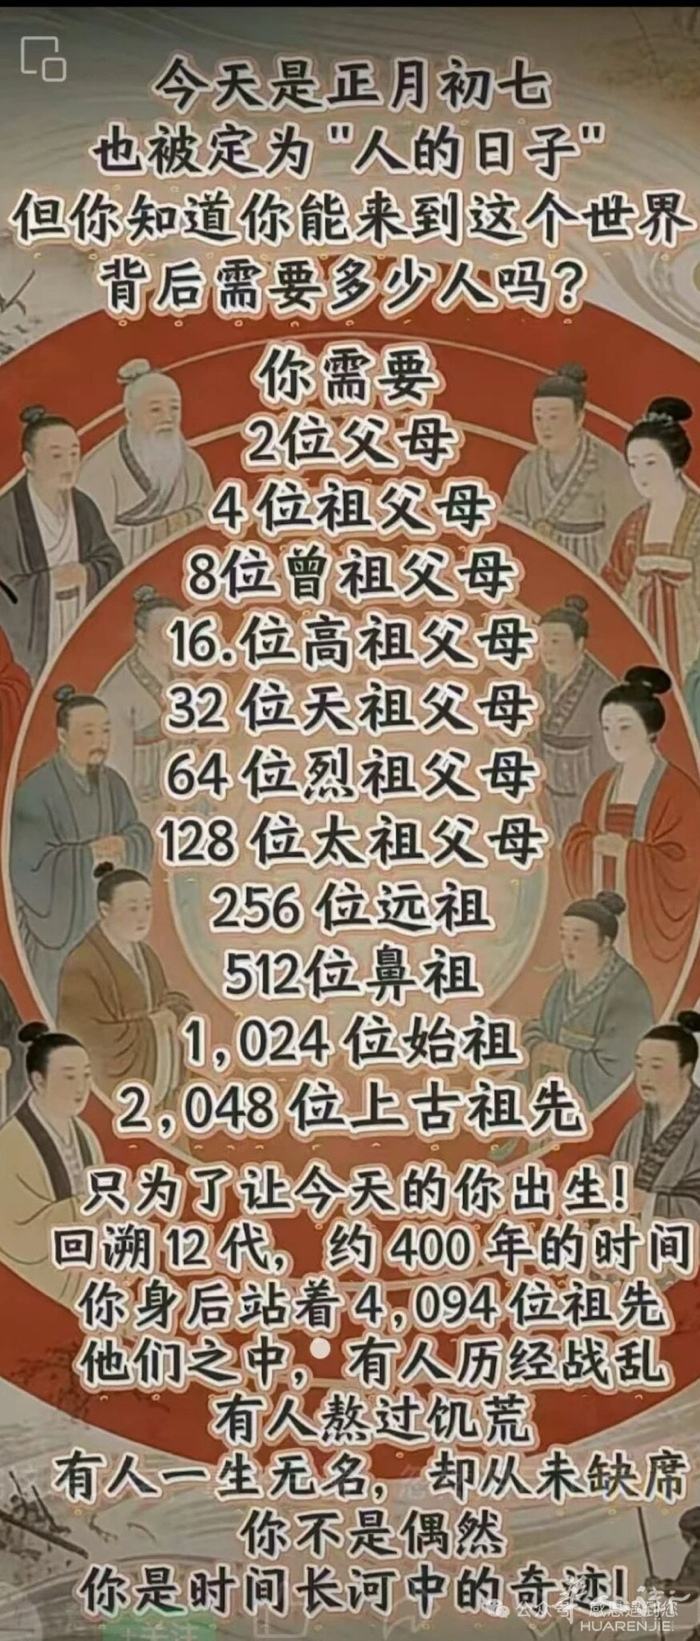 今天是正月初七
也被定为"人的日子"
但你知道你能来到这个世界
背后需要多少人吗?
你需要
2位父母
4位祖父母
8位曾祖父母
16.位高祖父母
32位天祖父母
64位烈祖父母
128位太祖父母
256位远祖
512位鼻祖
1,024位始祖
2,048位上古祖先
只为了让今天的你出生!
回溯12代,约400年的时间
你身后站着4,094位祖先
他们之中,有人历经战乱
有人熬过饥荒
有人一生无名,却从未缺席
你不是偶然
你是时间长河中的奇迹!
公众号
感恩遇到您
HUARENJIE